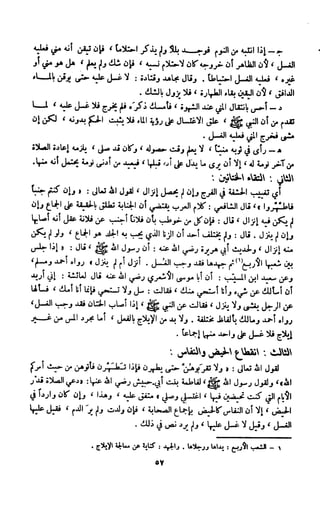 ج - إذا انتبه من النوم فوجد بللا ولم يذكر احتلاما ، فإن تيقن أنه مني فعليه
الغسل ، لأن الظاهر أن خروجه كان لاحتلام نسيه ، فإن شك ولم يعلم ، هل هو مني أو
غيره ، فعليه الغسل احتياطا . وقال مجاهد وقتادة : لا غسل عليه حتى يوقن بالماء
الدافق ، لأن اليقين بقاء الطهارة ، فلا يزول بالشك .
د - أحس بانتقال المني عند الشهوة ، فأمسك ذكره ، فلم يخرج فلا غسل عليه ، لما
تقدم من أن النبي ﷺ ، علق الاغتسال على رؤية الماء فلا يثبت الحكم بدونه ، لكن إن
مشى فخرج المني فعليه الغسل .
ه - رأى في ثوبه منيا ، لا يعلم وقت حصوله ، وكان قد صلى ، يلزمه إعادة الصلاة
من آخر نومة له ، إلا أن يرى ما يدل على أنه قبلها ، فيعيد من أدنى نومة يحتمل أنه منها .
الثاني : التقاء الختانين :
أي تغييب الحشفة في الفرج وإن لم يحصل إنزال ، لقول الله تعالى : « وإن كنتم جنبا
فاطهروا » ، قال الشافعي : كلام العرب يقتضي أن الجنابة تطلق بالحقيقة على الجماع وإن
لم يكن فيه إنزال ، قال : فإن كل من خوطب بأن فلانا أجنب عن فلانة عقل أنه أصابها
وإن لم ينزل . قال : ولم يختلف أحد أن الزنا الذي يجب به الجلد هو الجماع ، ولو لم يكن
منه إنزال ، ولحديث أبي هريرة رضي الله عنه : أن رسول الله ﷺ ، قال : « إذا جلس
بين شعبها الأربع (١) ثم جهدها فقد وجب الغسل . أنزل أم لم ينزل » رواه أحمد ومسلم ،
وعن سعيد ابن المسيب : أن أبا موسى الأشعري رضي الله عنه قال لعائشة : إني أريد
أن أسألك عن شيء وأنا أستحي منك ، فقالت : سل ولا تستحي فإنما أنا أمك ، فسألها
عن الرجل يغشى ولا ينزل ، فقالت عن النبي ﷺ ، إذا أصاب الختان فقد وجب الغسل ،
رواه أحمد ومالك بألفاظ مختلفة . ولا بد من الإيلاج بالفعل ، أما مجرد المس من غير
إيلاج فلا غسل على واحد منها إجماعا .
الثالث : انقطاع الحيض والنفاس :
لقول الله تعالى : « ولا تقربوهن حتى يطهرن فإذا تطهرن فأتوهن من حيث أمركم
الله » ، ولقول رسول الله ﷺ ، لفاطمة بنت أبي حبيش رضي الله عنها : « دعي الصلاة قدر
الأيام التي كنت تحيضين فيها ، اغتسلي وصلي » متفق عليه ، وهذا ، وإن كان واردا في
الحيض ، إلا أن النفاس كالحيض بإجماع الصحابة ، فإن ولدت ولم ير الدم ، فقيل عليها
الغسل ، وقيل لا غسل عليها ، ولم يرد نص في ذلك .
١ - الشعب الأربع : يداها ورجلاها . والجهد : كناية عن معالجة الإيلاج .
٥٧